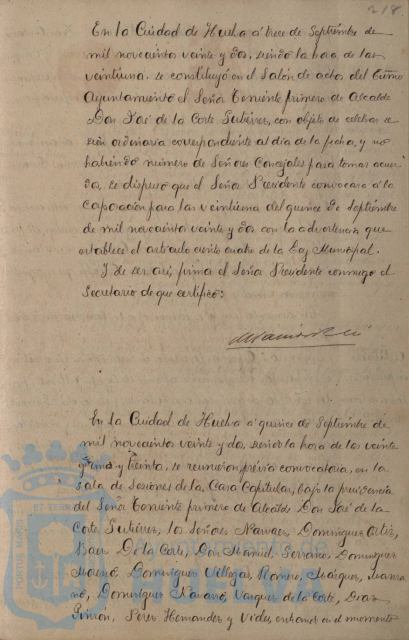 218.
En la Ciudad de Huelva á trece de Septiembre de
mil novecientos veinte y dos, siendo la hora de las
veintiuna, se constituyó en el Salón de actos del Excmo
Ayuntamiento el Señor Teniente primero de Alcalde
Don José de la Corte Gutiérrez, con objeto de celebrar se-
sión ordinaria correspondiente al día de la fecha, y no
habiendo número de Señores Concejales para tomar acuer-
do, se dispuso que el Señor Presidente convocara á la
Corporación para las veintiuna del quince de Septiembre
de mil novecientos veinte y dos con la advertencia que
establece el artículo ciento cuatro de la Ley Municipal.
Y de ser así, firma el Señor Presidente conmigo el
Secretario de que certifico:
En la Ciudad de Huelva á quince de Septiembre de
mil novecientos veinte y dos, siendo la hora de las veinte
y una y treinta, se reunieron, previa convocatoria, en la
sala de Sesiones de la Casa Capitular, bajo la presidencia
del Señor Teniente primero de Alcalde Don José de la
Corte Gutiérrez, los Señores Narvaez, Domínguez Ortiz,
Baez De la Corte, Don Manuel Serrano, Domínguez
Moreno, Domínguez Villegas, Romero, Márquez,
Domínguez Vazquez de la Corte, Diaz
Pinzon, Perez Hernandez y Vides, entrando en el momento
PORTUS MARIS
ET TERR